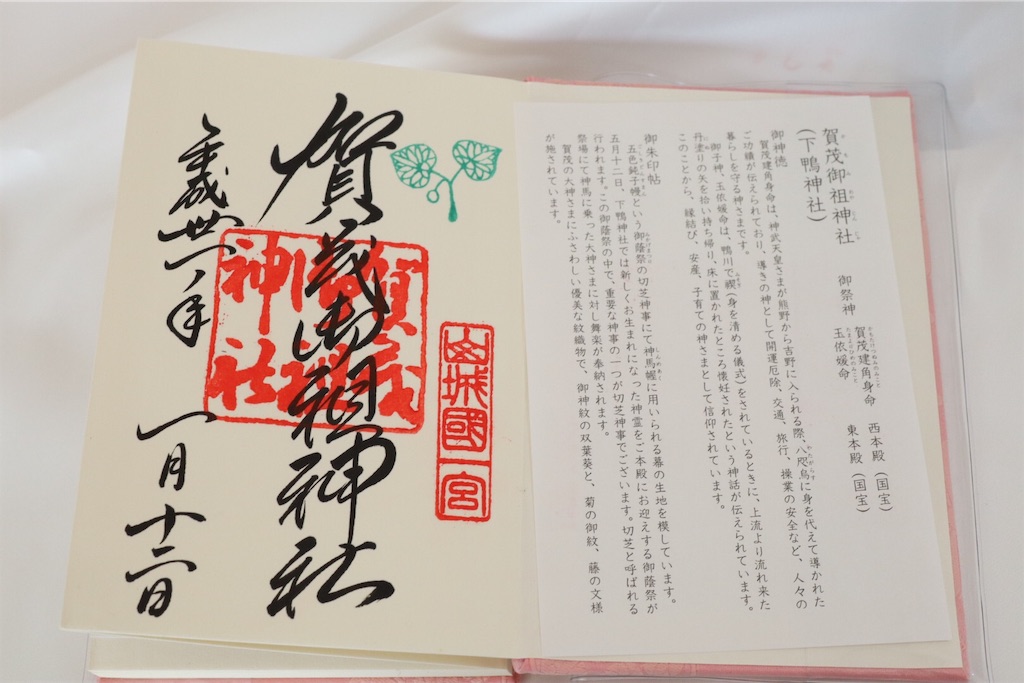 賀茂御祖神社
(下鴨神社)
御祭神
賀茂建角身命 西本殿(国宝)
玉依媛命 東本殿(国宝)
御神徳
賀茂建角身命は、神武天皇さまが熊野から吉野に入られる際、八咫烏に身を代えて導かれた
ご功績が伝えられており、導きの神として開運厄除、交通、旅行、操業の安全など、人々の
暮らしを守る神さまです。
御子神、玉依媛命は、鴨川で禊(身を清める儀式)をされているときに、上流より流れ来た
丹塗りの矢を拾い持ち帰り、床に置かれたところ懐妊されたという神話が伝えられています。
このことから、縁結び、安産、子育ての神さまとして信仰されています。
御朱印帖
五色鈍子幄という御蔭祭の切芝神事にて神馬幄に用いられる幕の生地を模しています。
五月十二日、下鴨神社では新しくお生まれになった神霊をご本殿にお迎えする御蔭祭が
行われます。この御蔭祭の中で、重要な神事の一つが切芝神事でございます。切芝と呼ばれる
祭場にて神馬に乗った大神さまに対し舞楽が奉納されます。
賀茂の大神さまにふさわしい優美な紋織物で、御神紋の双葉葵と、菊の御紋、藤の文様
が施されています。
山城國一宮
賀茂御祖神社
賀茂御祖神社
平成丗一年 一月十二日